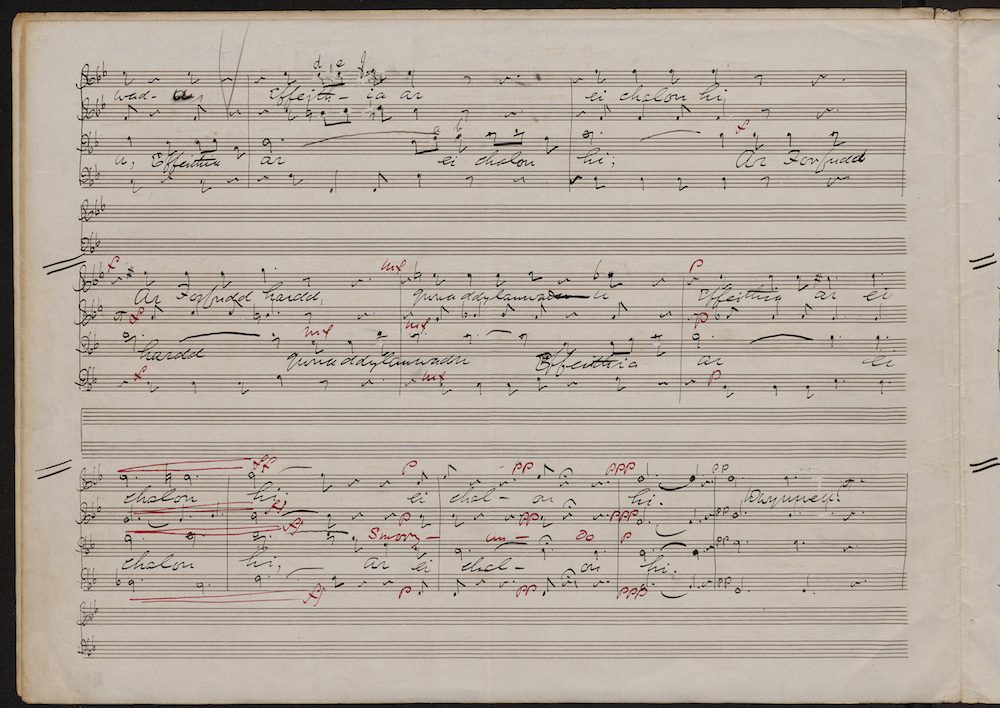 d e f
wad- Effeith- ia ar ei chalon hi
u, Effeithia ar ei chalon hi; Ar Forfudd
f
f mf p
Ar Forfudd hardd, Effeithia ar ei
f mf mf p
hardd Effeithia ar ei
f mf p
ff p pp ppp pp
chalon hi, ei chal- on hi.
ff p pp ppp
ff Smorz- an- do p pp
chalon hi, ar ei chal- on hi.
ff p pp ppp pp